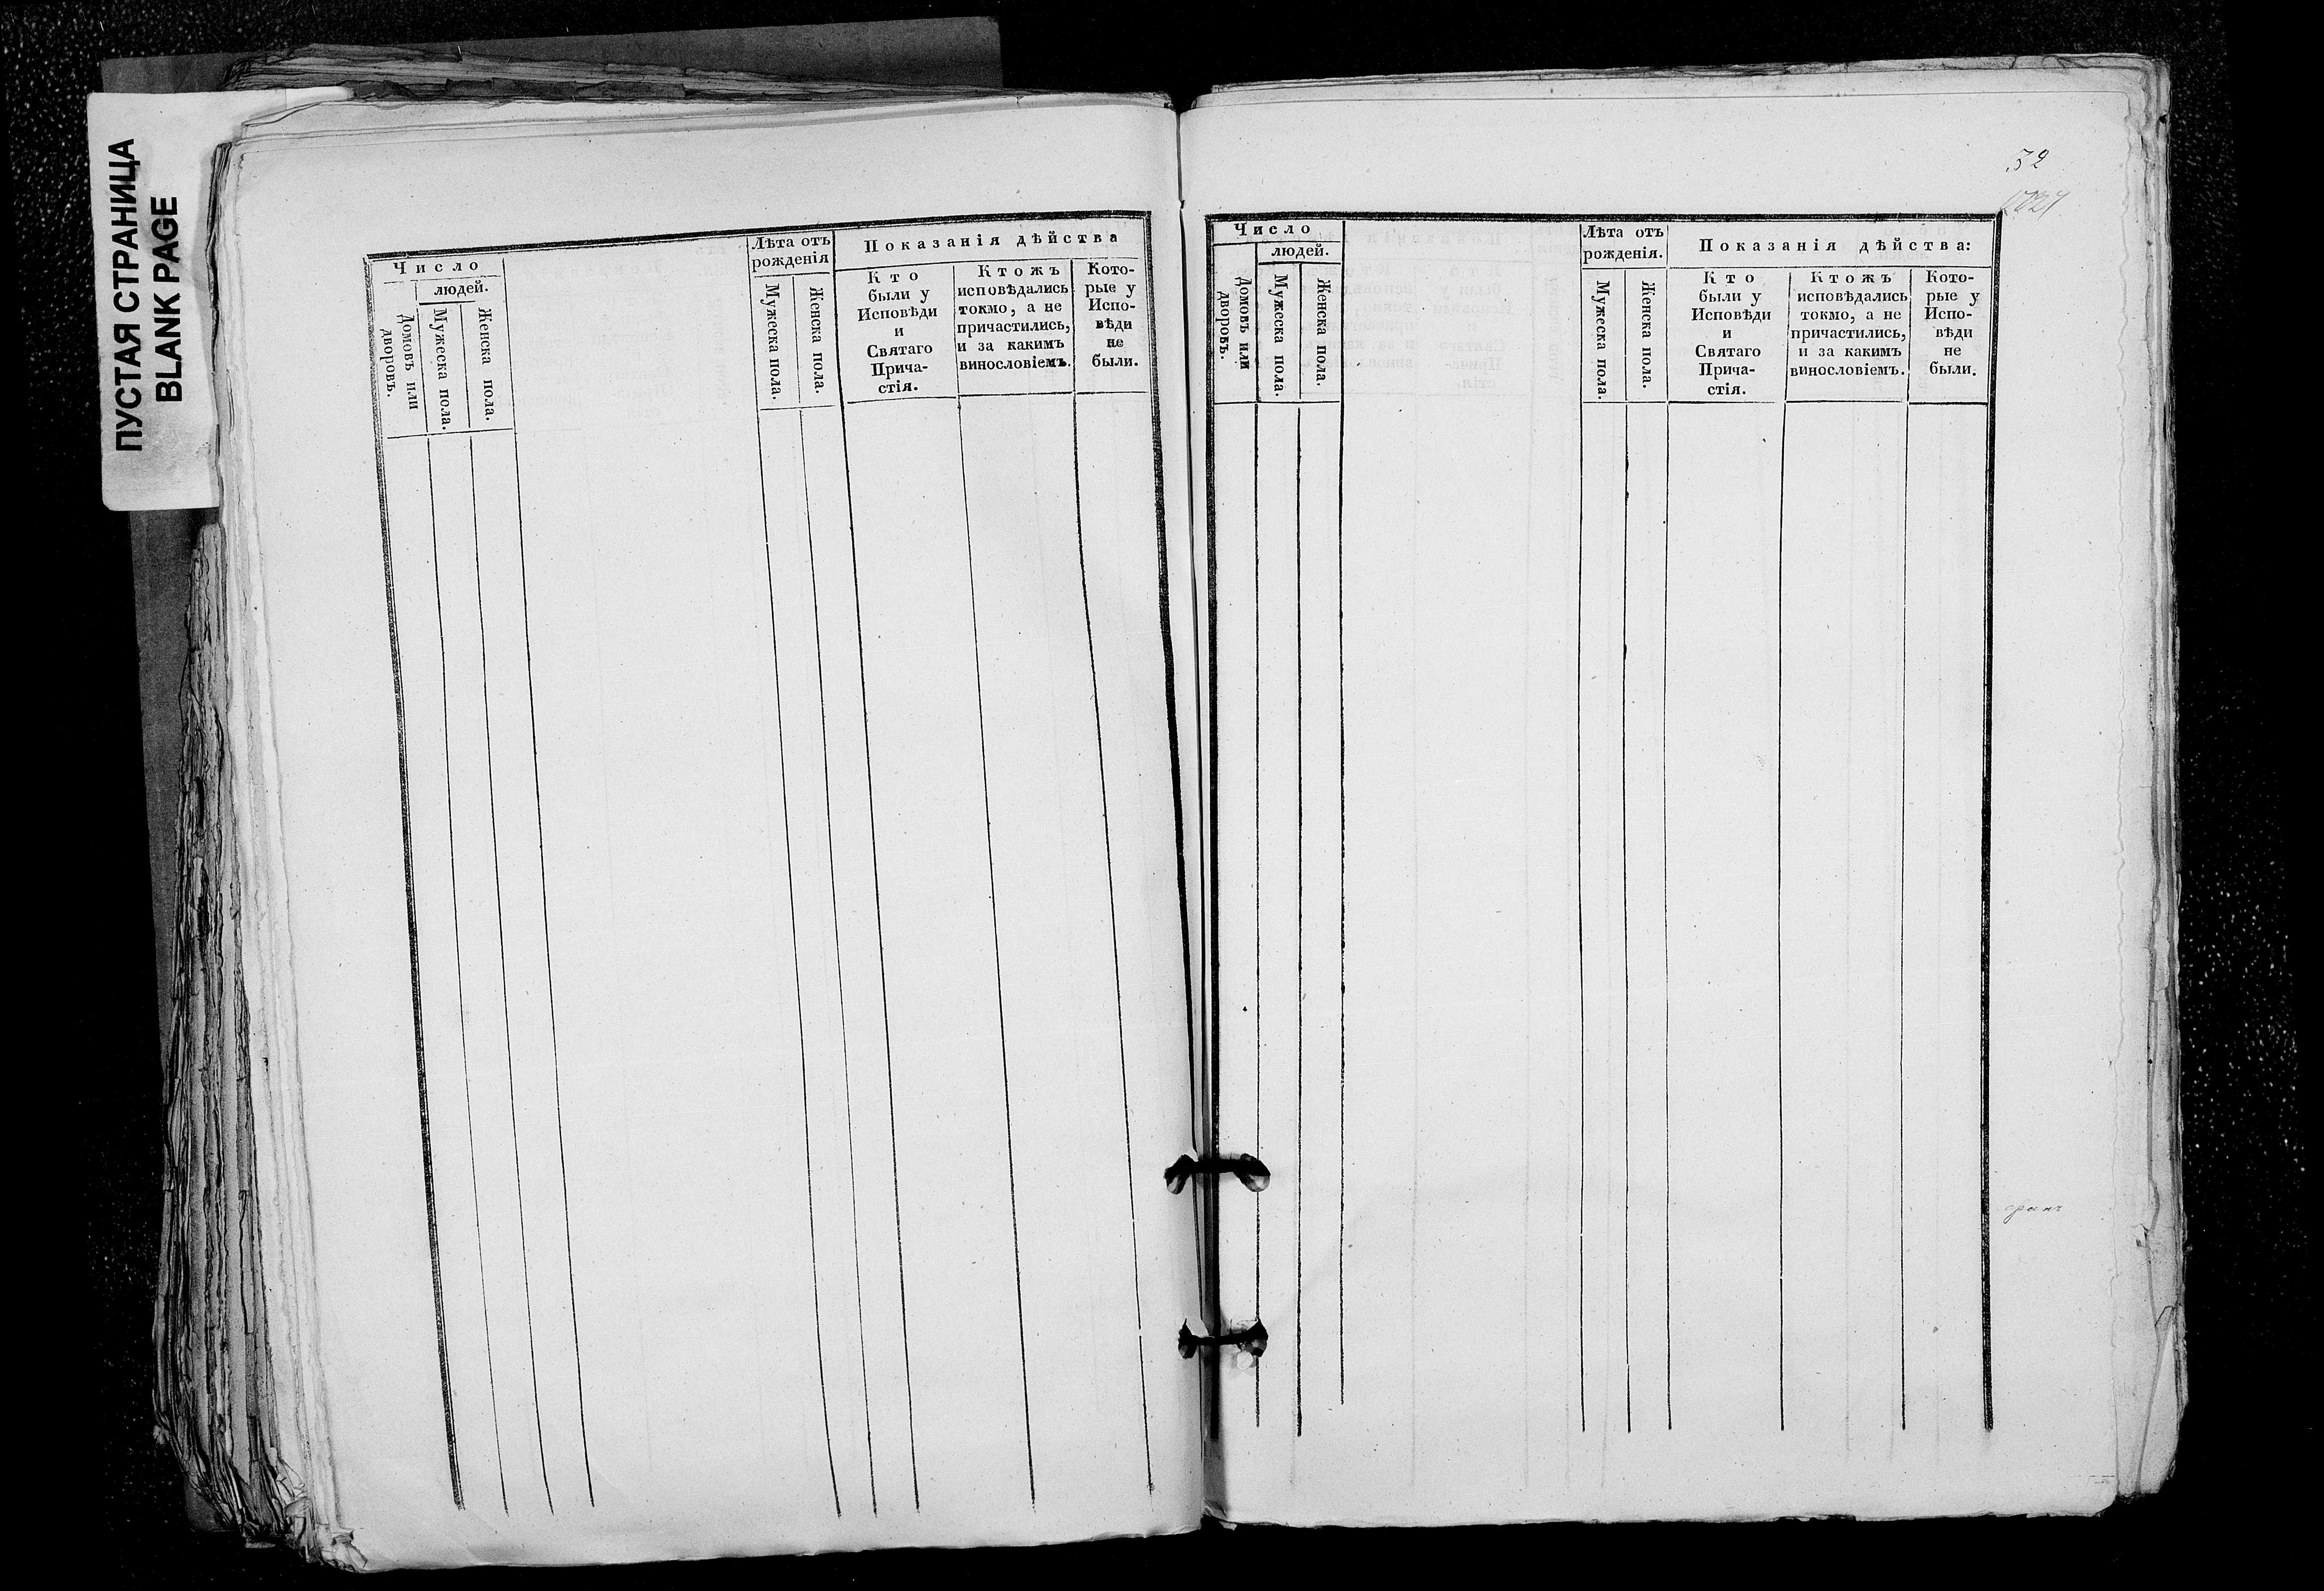 ПУСТАЯ СТРАНИЦА
BLANK PAGE
Число
людей.
Домовъ или
дворовъ.
Мужеска пола.
Женска пола.
Лѣта отъ
рожденія
Мужеска пола.
Женска пола.
Показанія дѣйства
Кто
были у
Исповѣди
и
Святаго
Прича-
стія.
Ктожъ
исповѣдались
токмо, а не
причастились,
и за какимъ
винословіемъ.
Кото-
рые у
Испо-
вѣди
не
были.
32
Число
людей.
Домовъ или
дворовъ.
Мужеска пола.
Женска пола.
Лѣта отъ
рожденія.
Мужеска пола.
Женска пола.
Показанія дѣйства:
Кто
были у
Исповѣди
и
Святаго
Прича-
стія.
Ктожъ
исповѣдались
токмо, а не
причастились,
и за какимъ
винословіемъ.
Кото-
рые у
Испо-
вѣди
не
были.